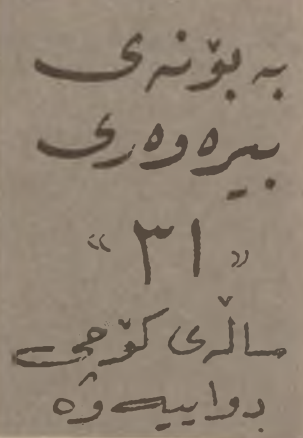 بە بۆنەی
بیرەوەری
«٣١»
ساڵەی کۆچی
دواییەوە